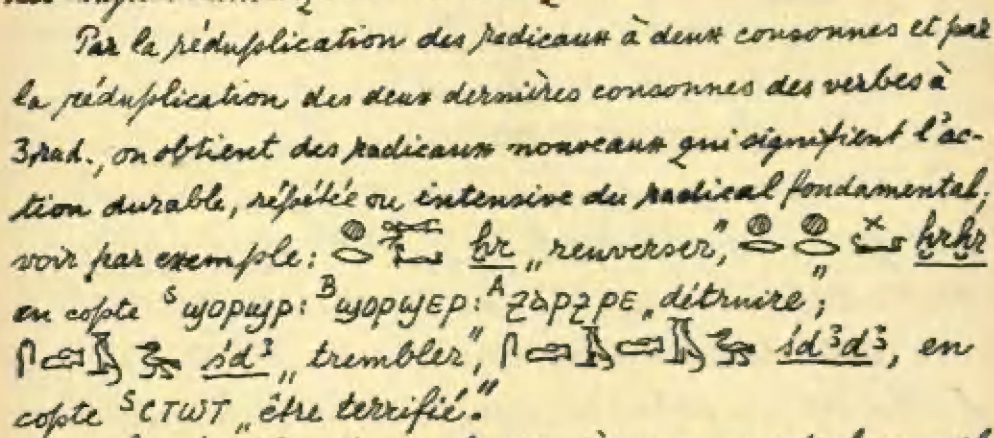 Par la réduplication des radicaux à deux consonnes et par
la réduplication des deux dernières consonnes des verbes à
3,rad., on obtient des radicaux nouveaux qui signifient l'ac-
tion durable, répétée ou intensive du radical fondamental;
voir par exemple: 𓐍𓂋 ḫr „renverser”, 𓐍𓂋𓐍𓂋𓏴𓂡 ḫrḫr
en copte ˢϣⲟⲣϣⲣ: ᴮϣⲟⲣϣⲉⲣ: ᴬϩⲁⲣϩⲣⲉ „détruire”;
𓋴𓂧𓄿𓅯 śd³ „trembler”, 𓋴𓂧𓄿𓂧𓄿𓅯 śd³d³, en
copte ˢⲥⲧⲱⲧ „être terrifié.”